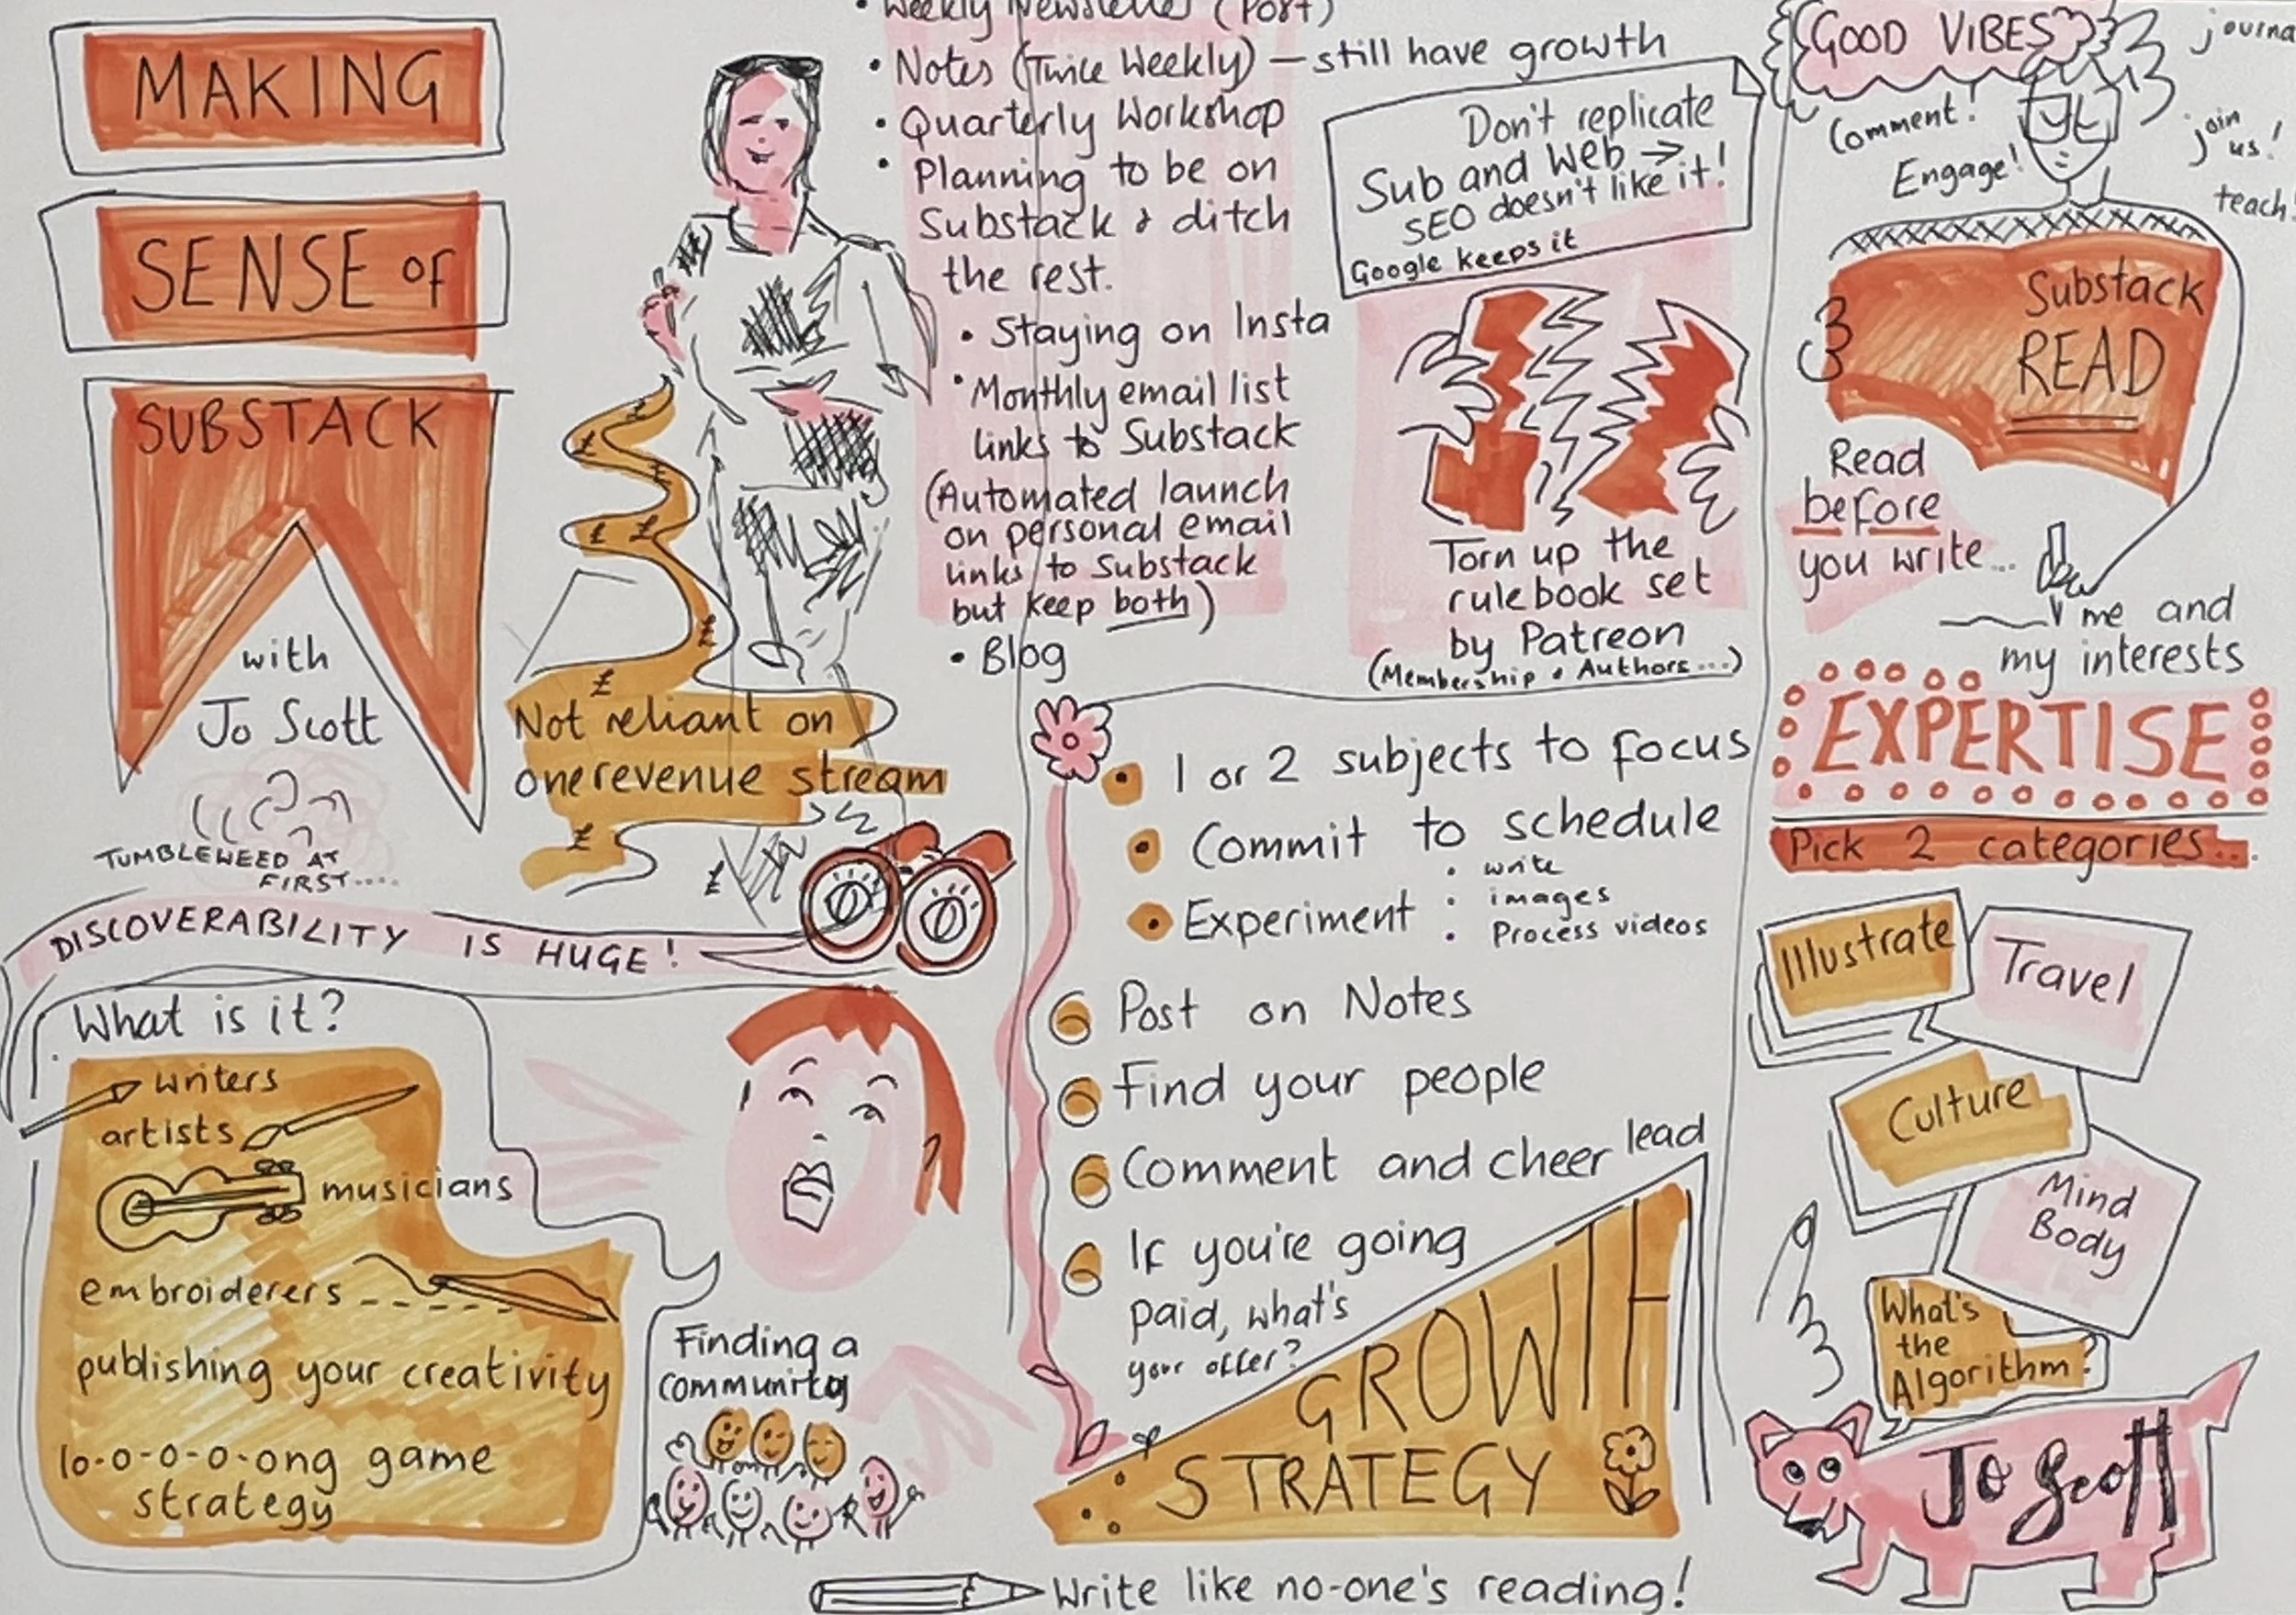 MAKING
SENSE OF
SUBSTACK
with
Jo Scott
TUMBLEWEED AT
FIRST....
DISCOVERABILITY IS HUGE!
What is it?
writers
artists
musicians
embroiderers
publishing your creativity
lo-o-o-o-o-ong game
strategy
£
£
£
£
£
£
£
Not reliant on
one revenue stream
£
£
Finding a
community
• Weekly Newsletter (Post)
• Notes (Twice Weekly) — still have growth
• Quarterly Workshop
• Planning to be on
Substack & ditch
the rest.
• Staying on Insta
• Monthly email list
links to Substack
(Automated launch
on personal email
links to Substack
but keep both)
• Blog
Don't replicate
Sub and Web →
SEO doesn't like it!
Google keeps it
Torn up the
rulebook set
by Patreon
(Membership • Authors...)
1 or 2 subjects to focus
Commit to schedule
Experiment
• write
• images
• Process videos
Post on Notes
Find your people
Comment and cheer lead
If you're going
paid, what's
your offer?
GROWTH
STRATEGY
Write like no-one's reading!
GOOD VIBES
Comment!
Engage!
join
us!
teach!
Substack
READ
Read
before
you write...
me and
my interests
EXPERTISE
Pick 2 categories...
Illustrate
Travel
Culture
Mind
Body
What's
the
Algorithm?
Jo Scott